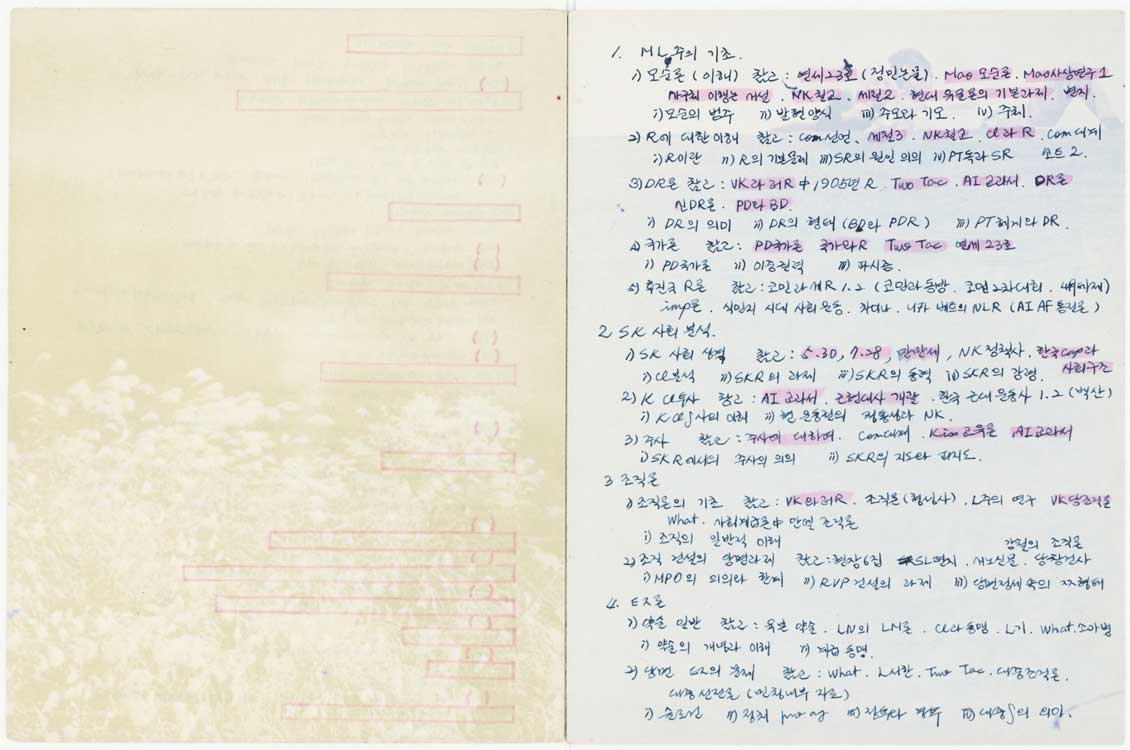 1. ML주의 기초.
1) 모순론 (이해) 참고 : 연세23호 (정민논물). Mao 모순론. Mao사상연구 1
NK철교. 세철2. 현대 유물론의 기본과제. 변지.
i) 모순의 범주 ii) 발현양식 iii) 주요와 기모. iv) 주취.
2) R에 대한 이해 참고 : Com선언, 세철3. NK철교. Cl과 R. Com대계
i) R이란 ii) R의 기본문제 iii) SR의 원인 의의 iv) PT독과 SR 노트 2.
3) DR론 참고 : VK와 러R 中 1905년 R. Two Tac. AI교과서. DR론
신DR론. PD와 BD.
i) DR의 의미 ii) DR의 형태 (BD와 PDR) iii) PT헤게와 DR.
4) 국가론 참고 : PD국가론 국가와R Two Tac 연세23호
i) PD국가론 ii) 이중권력 iii) 파시즘.
5) 후진국 R론 참고 : 코민과 세R 1.2 (코민과 동방. 코민2차대회. 4테제)
imp론. 식민지 시대 사회운동. 니카 베트의 NLR (AI AF 통일론)
2. SK 사회 분석.
1) SK 사회 성격 참고 : 5.30, 7.28, 만만세, NK정책사. 한국cap과
i) Cl분석 ii) SKR의 과제 iii) SKR의 동력 iv) SKR의 강령. 사회구조
2) K Cl투사 참고 : AI교과서. 근현대사 개괄. 한국 근대 운동사 1.2 (백산)
i) K Cl∫사의 이해 ii) 현 운동권의 정통성과 NK.
3) 주사 참고 : 주사에 대하여. Com대계. Kim교육론 AI교과서
i) SKR에서의 주사의 의의 ii) SKR의 지도와 피지도.
3 조직론
1) 조직론의 기초 참고 : VK와 러R. 조직론 (형성사). L주의 연구 VK당조직론
What. 사회계급론中 만델 조직론
i) 조직의 일반적 이해
강철의 조직론
2) 조직 건설의 당면과제 참고 : 현장6집 SL편지. 서노신문. 당창건사
i) MPO의 의의와 한계 ii) RVP건설의 과제 iii) 당면정세 속의 조직형태
4. 전술론
1) 약술 일반 참고 : 육본 약술. LN의 LN론. Cl과 동맹. L기. What. 소아병
i) 약술의 개념과 이해 ii) 계급 동맹.
2) 당면 문제 참고 : What. L서한. Two Tac. 대중조직론.
대중선전론 (민청내부 자료)
i) 슬로건 ii) 정치 iii) iv) 대중∫의 의미.